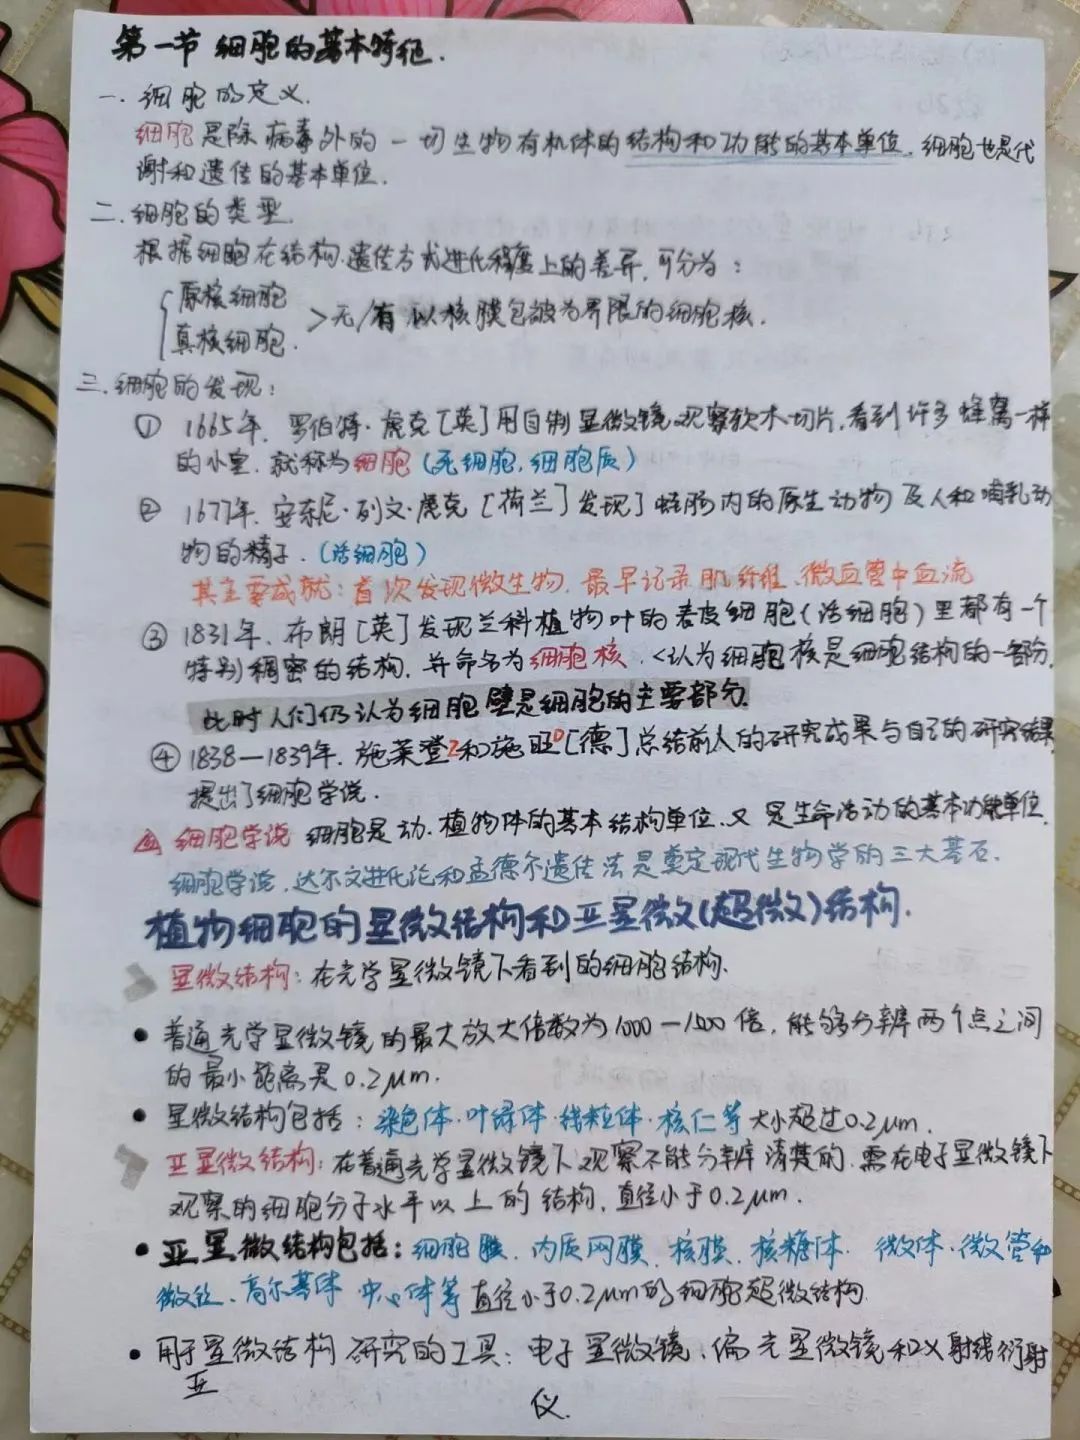 第一节 细胞的基本特征.
一. 细胞的定义.
细胞是除病毒外的一切生物有机体的结构和功能的基本单位. 细胞也是代
谢和遗传的基本单位.
二. 细胞的类型.
根据细胞在结构.遗传方式进化程度上的差异,可分为:
原核细胞
真核细胞.
>无/有 以核膜包被为界限的细胞核.
三.细胞的发现:
① 1665年. 罗伯特·虎克[英]用自制显微镜观察软木切片,看到许多蜂窝一样
的小室. 就称为细胞(死细胞,细胞质)
② 1677年. 安东尼·列文·虎克[荷兰]发现了蛙肠内的原生动物及人和哺乳动
物的精子.(活细胞)
其主要成就:首次发现微生物. 最早记录肌纤维、微血管中血流
③ 1831年. 布朗[英]发现兰科植物叶的表皮细胞(活细胞)里都有一个
特别稠密的结构. 并命名为细胞核. <认为细胞核是细胞结构的一部分.
此时人们仍认为细胞壁是细胞的主要部分.
④ 1838—1839年. 施莱登Z和施旺D[德]总结前人的研究成果与自己的研究结果
提出了细胞学说.
细胞学说 细胞是动.植物体的基本结构单位.又是生命活动的基本功能单位.
细胞学说.达尔文进化论和孟德尔遗传法是奠定现代生物学的三大基石.
植物细胞的显微结构和亚显微(超微)结构.
显微结构:在光学显微镜下看到的细胞结构.
• 普通光学显微镜的最大放大倍数为1000—1500倍, 能够分辨两个点之间
的最小距离是0.2μm.
• 显微结构包括: 染色体·叶绿体·线粒体·核仁等大小超过0.2μm.
亚显微结构:在普通光学显微镜下观察不能分辨清楚的.需在电子显微镜下
观察的细胞分子水平以上的结构. 直径小于0.2μm.
• 亚显微结构包括: 细胞膜. 内质网膜. 核膜. 核糖体. 微体·微管和
微丝. 高尔基体 中心体等直径小于0.2μm的细胞超微结构.
• 用于显微结构研究的工具: 电子显微镜、偏光显微镜和X射线衍射
亚
仪.